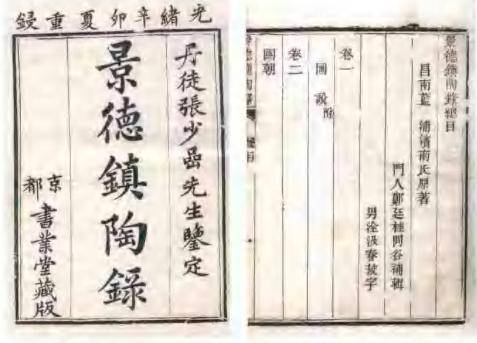 光緒辛卯夏重鋟
丹徒張少嵒先生鑒定
景德鎮陶錄
京都
書業堂藏版
景德鎮陶錄總目
昌南藍 浦濱南氏原著
門人鄭廷桂問谷補輯
男 汲春 字
卷一
圖說附
卷二
國朝